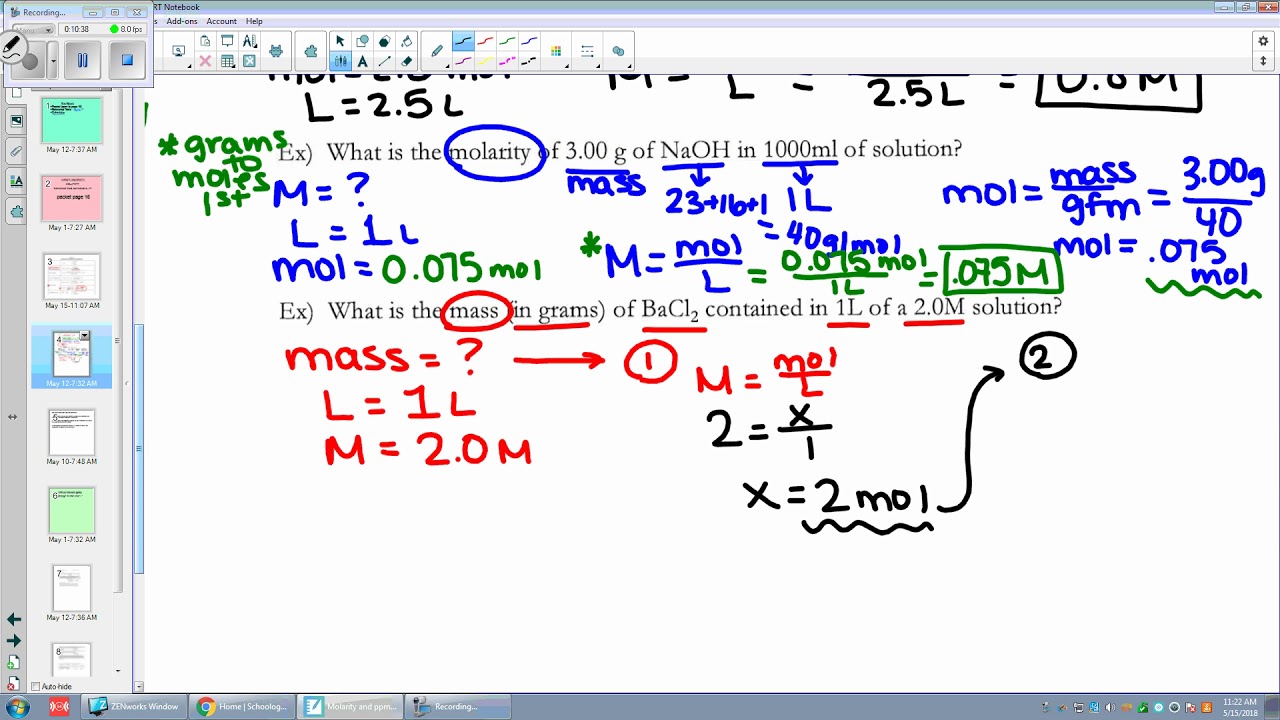 Recording...
RT Notebook
0:10:38
8.0 fps
Add-ons Account Help
L = 2.5 L
L
=
2.5 L
= 0.8 M
* grams to moles 1st
Ex) What is the molarity of 3.00 g of NaOH in 1000ml of solution?
mass
23+16+1
= 40g/mol
1L
M = ?
L = 1 L
mol = 0.075 mol
* M = mol/L = 0.075 mol/1L = .075 M
mol = mass/gfm = 3.00g/40
mol = .075 mol
Ex) What is the mass (in grams) of BaCl₂ contained in 1L of a 2.0M solution?
mass = ?
L = 1 L
M = 2.0 M
1
M = mol/L
2 = x/1
x = 2 mol
2
1
May 12-7:37 AM
2
packet page 16
May 1-7:27 AM
3
May 15-11:07 AM
4
May 12-7:32 AM
5
May 10-7:48 AM
6
May 1-7:32 AM
7
May 12-7:36 AM
8
Auto-hide
ZENworks Window
Home | Schoolog...
Molarity and ppm...
Recording...
11:22 AM
5/15/2018